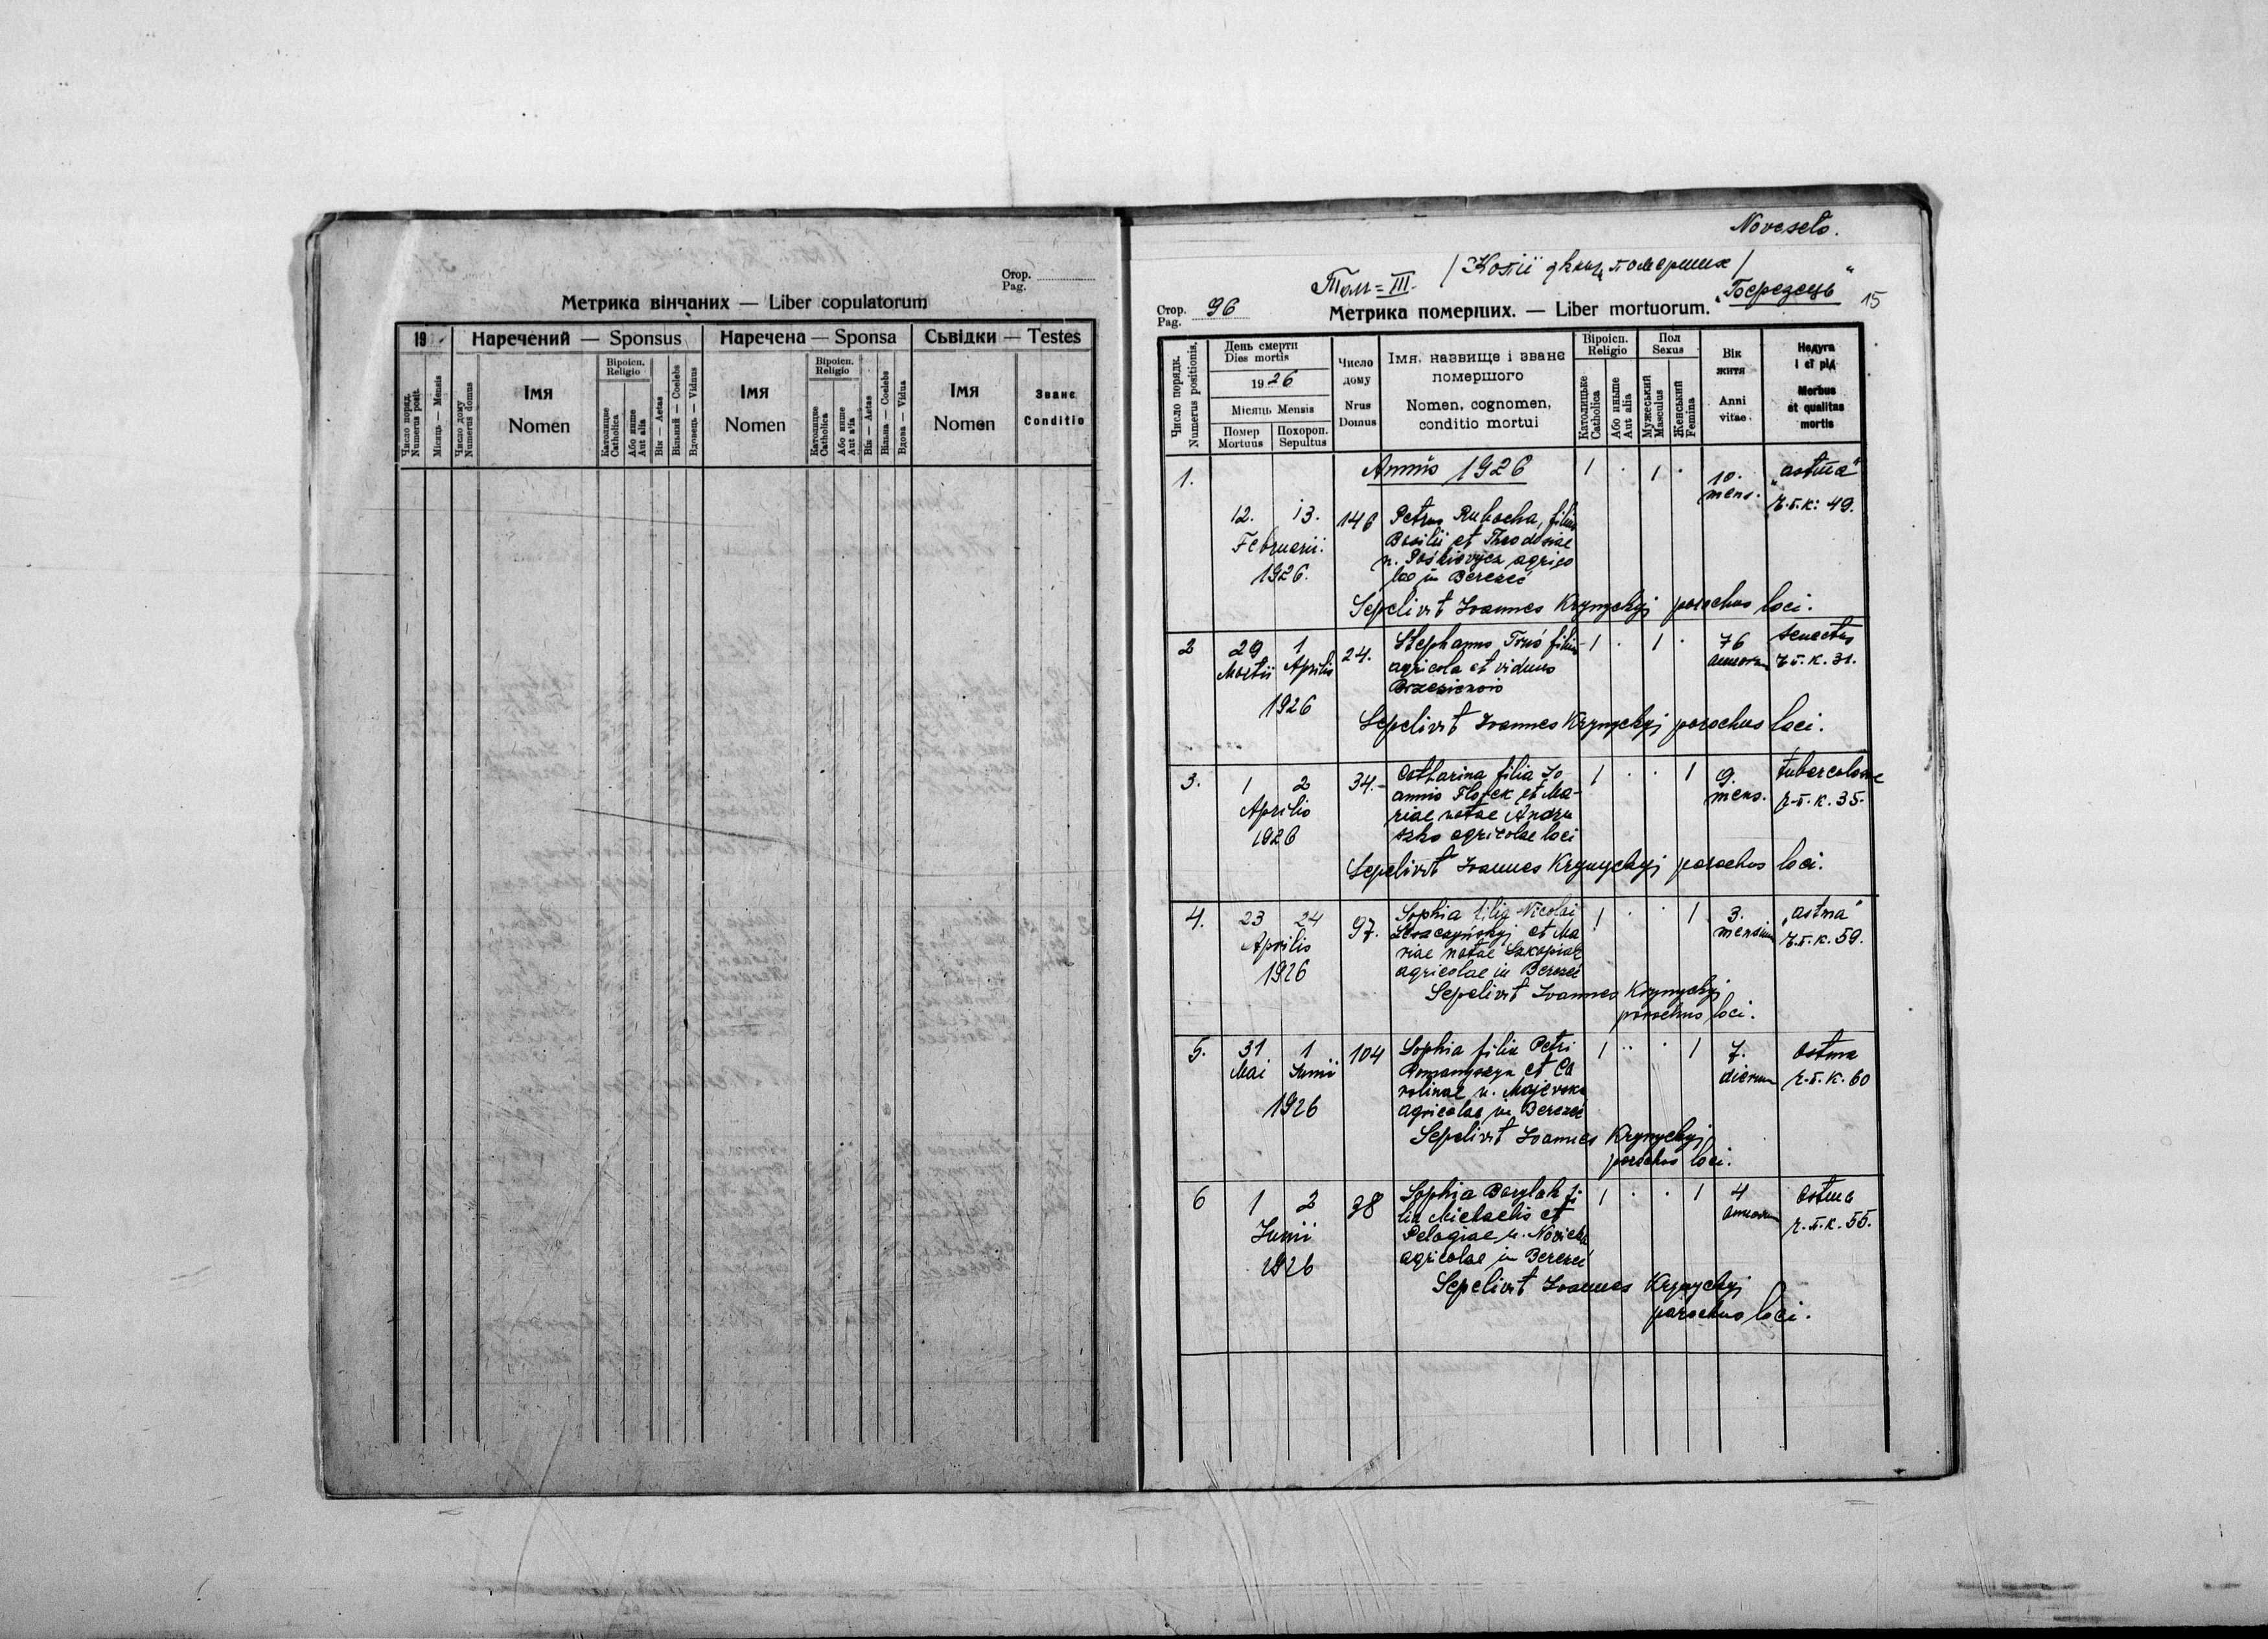 Стор.
Pag.
Метрика вінчаних — Liber copulatorum
19 Наречений — Sponsus Наречена — Sponsa Сьвідки — Testes
Число поряд. Numerus posit.
Місяць — Mensis
Число дому Numerus domus
Імя
Nomen
Віроісп.
Religio
Католицке Catholica
Або инше Aut alia
Вік — Aetas
Вільний — Coelebs
Вдовець — Viduus
Імя
Nomen
Віроісп.
Religio
Католицке Catholica
Або инше Aut alia
Вік — Aetas
Вільна — Coelebs
Вдова — Vidua
Імя
Nomen
Званє
Conditio
Noveselo.
Том = III. / Копії помершиx /
Стор.
Pag. 96
Метрика померших. — Liber mortuorum. „Березець“ 15
Число порядк. Numerus positionis.
День смерти
Dies mortis
1926
Місяць Mensis
Помер Mortuus
Похорон. Sepultus
Число
дому
Nrus
Domus
Імя, назвище і званє
помершого
Nomen, cognomen,
conditio mortui
Віроісп.
Religio
Католицьке Catholica
Або иньше Aut alia
Пол
Sexus
Мужеський Masculus
Женський Femina
Вік
житя
Anni
vitae.
Недуга
і єї рід
Morbus
et qualitas
mortis
Annus 1926
1. 1 · 1 · 10. mens. „astma“
г.т.к: 49.
12. 13. 146 Petrus Rubacha, filius
Februarii. Basilii et Theodosiae
1926. n. agrico
lae in Berezeć
Sepelivit Ioannes Krynyckyj parochus loci.
2 29 1 24. Stephanus filius 1 · 1 · 76 senectus
Martii Aprilis agricola et viduus annorum г.т.к. 31.
1926
Sepelivit Ioannes Krynyckyj parochus loci.
3. 1 2 34. Catharina filia Jo 1 · · 1 9. tuberculosae
Aprilis annis Florek et Ma- mens. г.т.к. 35.
1926 riae natae Andru
szko agricolae loci
Sepelivit Ioannes Krynyckyj parochus loci.
4. 23 24 97. Sophia filia Nicolai 1 · · 1 3. „astma“
Aprilis et Ma mensium г.т.к. 59.
1926 riae natae
agricolae in Berezeć
Sepelivit Ioannes Krynyckyj
parochus loci.
5. 31 1 104 Sophia filia Petri 1 · · 1 7. astma
Mai Junii Romanyszyn et Ca dierum г.т.к. 60
1926 rolinae n. Majevska
agricolae in Berezeć
Sepelivit Ioannes Krynyckyj
parochus loci.
6 1 2 38 Sophia fi 1 · · 1 4 astma
Junii lia Michaelis et annorum г.т.к. 55.
1926 Pelagiae n.
agricolae in Berezeć
Sepelivit Ioannes Krynyckyj
parochus loci.